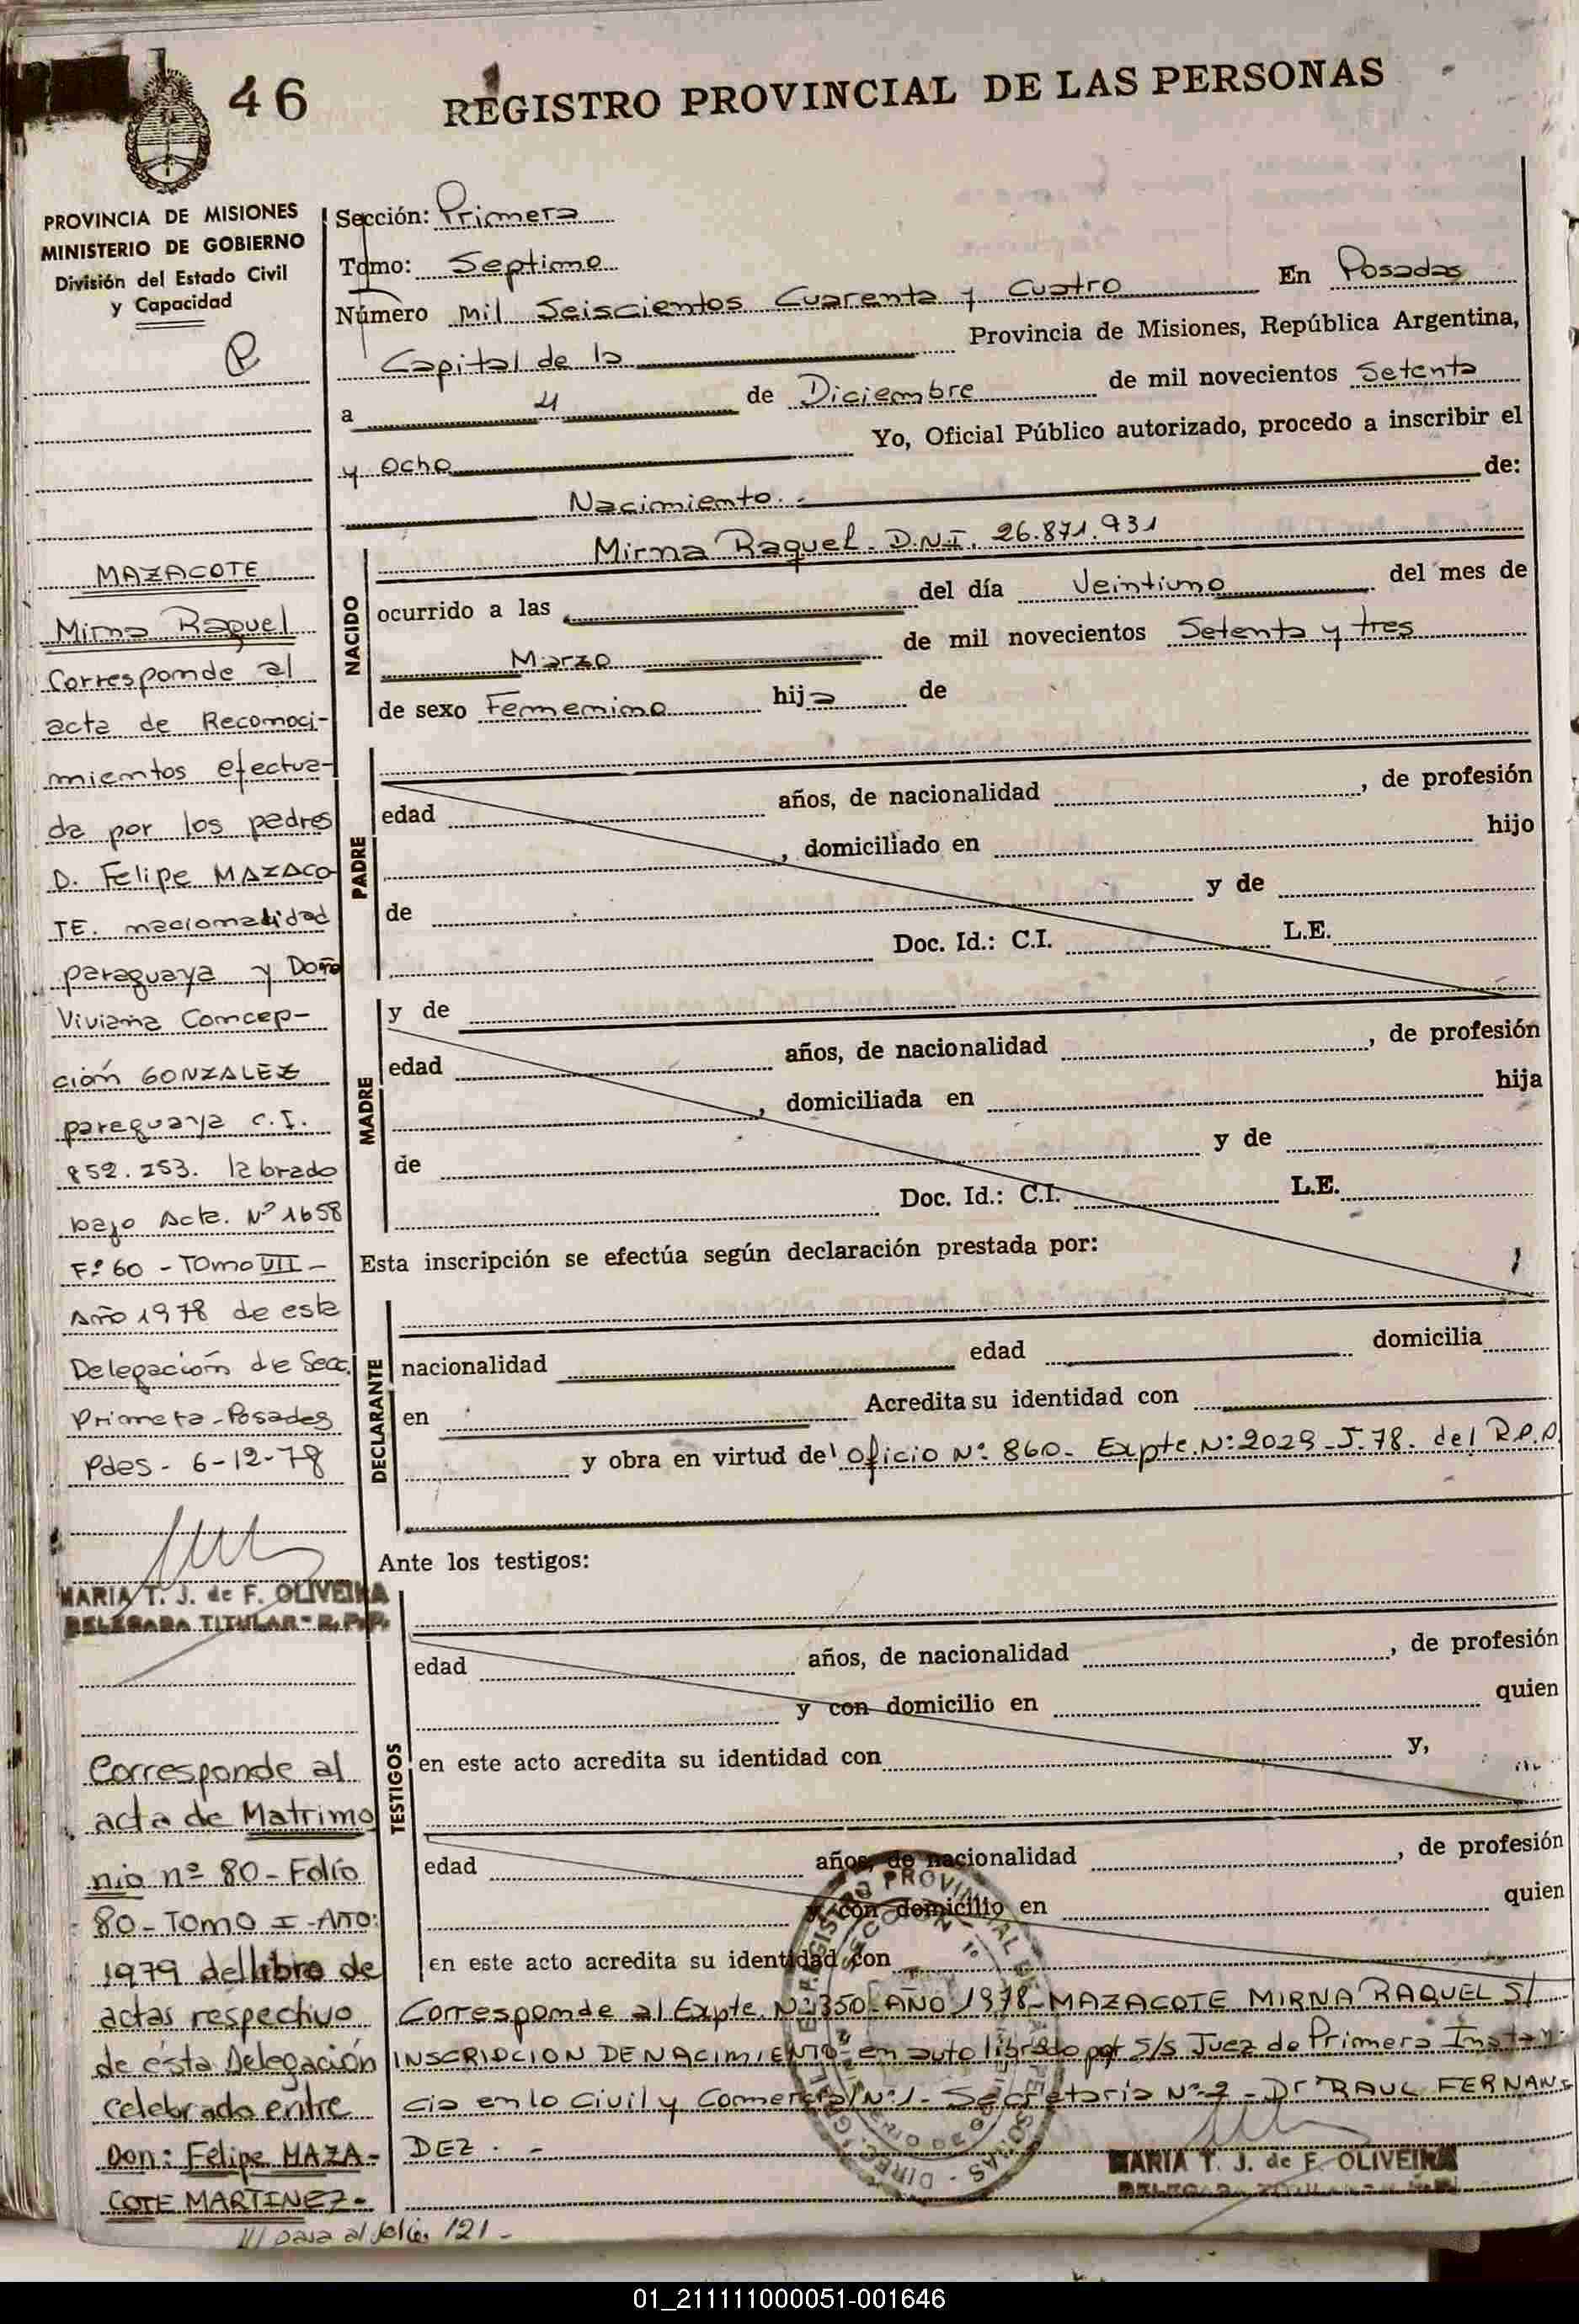 46
REGISTRO PROVINCIAL DE LAS PERSONAS
PROVINCIA DE MISIONES
MINISTERIO DE GOBIERNO
División del Estado Civil
y Capacidad
MAZACOTE
Mirna Raquel
Corresponde al
acta de Reconoci-
mientos efectua-
da por los padres
D. Felipe MAZACO
TE. nacionalidad
paraguaya y Doña
Viviana Concep-
ción GONZALEZ
paraguaya C.I.
852.253. labrado
bajo Acta. Nº 1658
Fº 60 - Tomo VII -
Año 1978 de esta
Delegación de Secc.
Primera - Posadas
Pdas - 6-12-78
MARIA T. J. de F. OLIVEIRA
DELEGADA TITULAR - R.P.P.
Corresponde al
acta de Matrimo
nio nº 80 - Folio
80 - Tomo I - Año:
1979 del libro de
actas respectivo
de ésta Delegación
celebrado entre
Don: Felipe MAZA-
COTE MARTINEZ -
/// pasa al folio 121 -
Sección: Primera
Tomo: Septimo
Número mil Seiscientos Cuarenta y Cuatro En Posadas
Capital de la Provincia de Misiones, República Argentina,
a 4 de Diciembre de mil novecientos Setenta
y ocho Yo, Oficial Público autorizado, procedo a inscribir el
Nacimiento.- de:
NACIDO
Mirna Raquel - D.N.I. 26.871.931
ocurrido a las del día Veintiuno del mes de
Marzo de mil novecientos Setenta y tres
de sexo Femenino hija de
PADRE
edad años, de nacionalidad , de profesión
, domiciliado en hijo
de y de
Doc. Id.: C.I. L.E.
MADRE
y de
edad años, de nacionalidad , de profesión
, domiciliada en hija
de y de
Doc. Id.: C.I. L.E.
Esta inscripción se efectúa según declaración prestada por:
DECLARANTE
nacionalidad edad domicilia
en Acredita su identidad con
y obra en virtud del Oficio Nº 860 - Expte. Nº 2029 - J. 78. del R.P.P.
Ante los testigos:
TESTIGOS
edad años, de nacionalidad , de profesión
y con domicilio en quien
en este acto acredita su identidad con y,
edad años, de nacionalidad , de profesión
y con domicilio en quien
en este acto acredita su identidad con
Corresponde al Expte. Nº 350 - AÑO 1978 - MAZACOTE MIRNA RAQUEL S/
INSCRIPCION DE NACIMIENTO - en auto librado por S/S Juez de Primera Instan-
cia en lo Civil y Comercial Nº 1 - Secretaria Nº 2 - Dr RAUL FERNAN-
DEZ . -
MARIA T. J. de F. OLIVEIRA
01_211111000051-001646